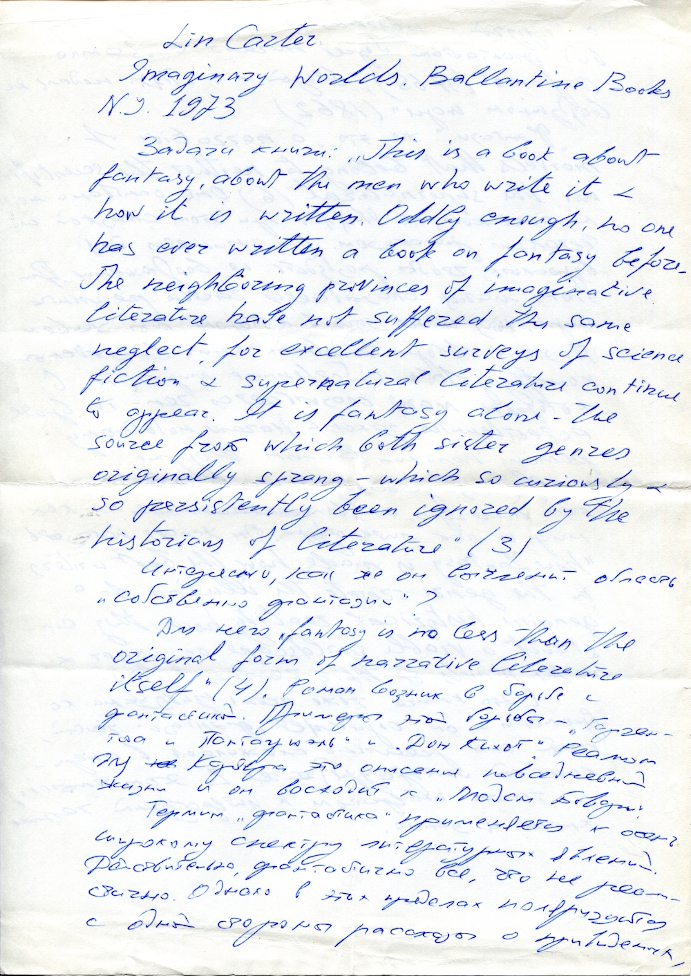 Lin Carter
Imaginary Worlds. Ballantine Books
N.J. 1973
Задачи книги: „This is a book about
fantasy, about the men who write it &
how it is written. Oddly enough, no one
has ever written a book on fantasy before.
The neighboring provinces of imaginative
literature have not suffered the same
neglect, for excellent surveys of science
fiction & supernatural literature continue
to appear. It is fantasy alone - the
source from which both sister genres
originally sprang - which so curiously &
so persistently been ignored by the
historians of literature" (3)
Интересно, как же он вычленит область
„собственно фантазии"?
Для него „fantasy is no less than the
original form of narrative literature
itself" (4). Роман возник в борьбе с
фантастикой. Примеры этой борьбы - „Гарган-
тюа и Пантагрюэль" и „Дон Кихот". Реализм
для Картера это описание повседневной
жизни и он восходит к „Мадам Бовари".
Термин „фантастика" применяется к очень
широкому спектру литературных явлений.
Действительно, фантастично все, что не реали-
стично. Однако в этих пределах
с одной стороны рассказы о привидениях,